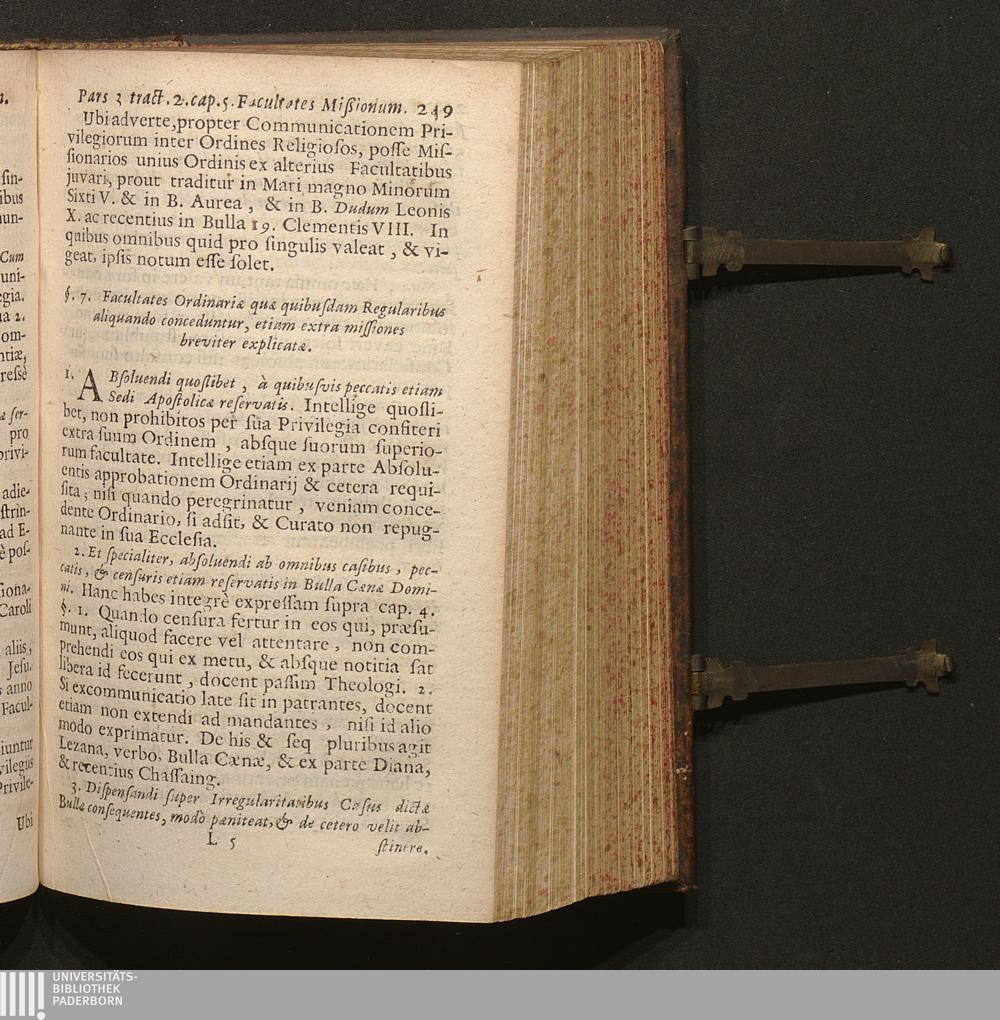 n.
sin-
ibus
nun-
Cum
uni-
egia.
ia 2.
om-
ntiæ,
resse
æ ser-
pro
privi-
adie-
strin-
ad E-
è pos-
Caroli
aliis,
Jesu.
s anno
Facul-
iuntur
vilegiis
Privile-
Ubi
Pars 3 tract.2.cap.5.Facultates Missionum. 249
Ubi adverte, propter Communicationem Pri-
vilegiorum inter Ordines Religiosos, posse Mis-
sionarios unius Ordinis ex alterius Facultatibus
juvari, prout traditur in Mari magno Minorum
Sixti V. & in B. Aurea, & in B. Dudum Leonis
X. ac recentius in Bulla 19. Clementis VIII. In
quibus omnibus quid pro singulis valeat, & vi-
geat, ipsis notum esse solet.
§. 7. Facultates Ordinariæ quæ quibusdam Regularibus
aliquando conceduntur, etiam extra missiones
breviter explicatæ.
1. ABsoluendi quoslibet, à quibusvis peccatis etiam
Sedi Apostolicæ reservatis. Intellige quosli-
bet, non prohibitos per sua Privilegia confiteri
extra suum Ordinem, absque suorum superio-
rum facultate. Intellige etiam ex parte Absolu-
entis approbationem Ordinarij & cetera requi-
sita; nisi quando peregrinatur, veniam conce-
dente Ordinario, si adsit, & Curato non repug-
nante in sua Ecclesia.
2. Et specialiter, absoluendi ab omnibus casibus, pec-
catis, & censuris etiam reservatis in Bulla Cænæ Domi-
ni. Hanc habes integrè expressam supra cap. 4.
§. 1. Quando censura fertur in eos qui, præsu-
munt, aliquod facere vel attentare, non com-
prehendi eos qui ex metu, & absque notitia sat
libera id fecerunt, docent passim Theologi. 2.
Si excommunicatio late sit in patrantes, docent
etiam non extendi ad mandantes, nisi id alio
modo exprimatur. De his & seq pluribus agit
Lezana, verbo, Bulla Cænæ, & ex parte Diana,
& recentius Chassaing.
3. Dispensandi super Irregularitatibus Casus dictæ
Bullæ consequentes, modò pæniteat, & de cetero velit ab-
L 5 stinere.
UNIVERSITÄTS-
BIBLIOTHEK
PADERBORN